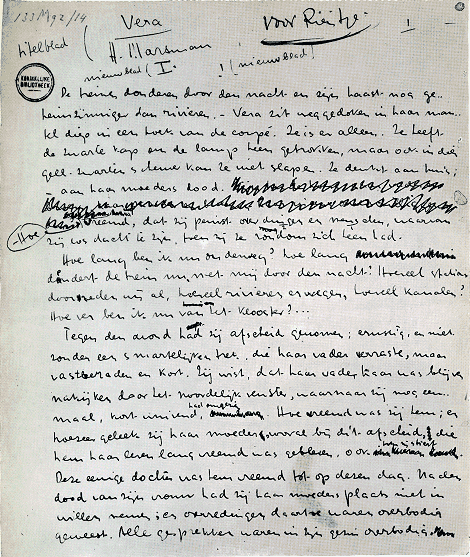 133 M 92/14
Vera
voor Rientje.
I —
titelblad
H. Marsman
nieuwblad ( I.
! ( nieuwblad !
KONINKLIJKE
BIBLIOTHEEK
De treinen donderen door den nacht en zijn haast nog ge-
heimzinniger dan rivieren. – Vera zit weggedoken in haar man-
tel diep in een hoek van de coupé. Ze is alleen. Ze heeft
de zwarte kap om de lamp heen getrokken, maar ook in dit
geel-zwarten schemer kan ze niet slapen. Ze denkt aan huis;
– aan haar moeders dood.
– Hoe vreemd, dat zij peinst over dingen en menschen, waarvan
zij los dacht te zijn, toen zij ze nog rondom zich heen had.
Hoe lang ben ik nu onderweg? hoe lang
dondert de trein nu met mij door den nacht? Hoeveel stations
doorreden wij al, hoeveel rivieren en wegen, hoeveel kanalen?
Hoe ver ben ik nu van het klooster?...
Tegen den avond had zij afscheid genomen; ernstig, en niet
zonder een smartelijken trek, die haar vader verraste, maar
vastberaden en kort. Zij wist, dat haar vader haar was blijven
nakijken door het noordelijk venster, waarnaar zij nog een-
maal, kort wuivend, had omgezien. Hoe vreemd was zij hem; en
hoezeer geleek zij haar moeder, vooral bij dit afscheid, die
hem haar leven lang vreemd was gebleven, ook
Deze eenige dochter was hem vreemd tot op dezen dag. Na den
dood van zijn vrouw had zij haar moeders plaats niet in
willen nemen; en overredingen daartoe waren overbodig
geweest. Alle gesprekken waren in zijn gezin overbodig